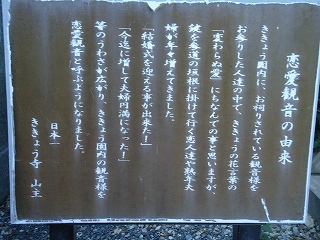 恋愛観音の由来
ききょう園内に、お祀りされている観音様を
お参りした人達の中で、ききょうの花言葉の
「変わらぬ愛」にちなんでの事と思いますが、
鍵を参道の垣根に掛けて行く恋人達や熟年夫
婦が年々増えてきました。
「結婚式を迎える事が出来た！」
「今迄に増して夫婦円満になった！」
等のうわさが広がり、ききょう園内の観音様を
恋愛観音と呼ぶようになりました。
日本一
ききょう寺 山主